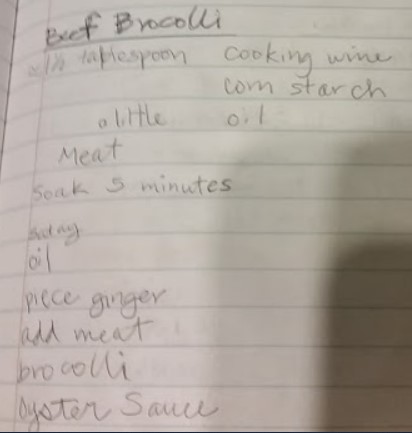 Beef Brocolli
1½ tablespoon cooking wine
corn starch
a little oil
Meat
Soak 5 minutes
oil
piece ginger
add meat
brocolli
Oyster Sauce